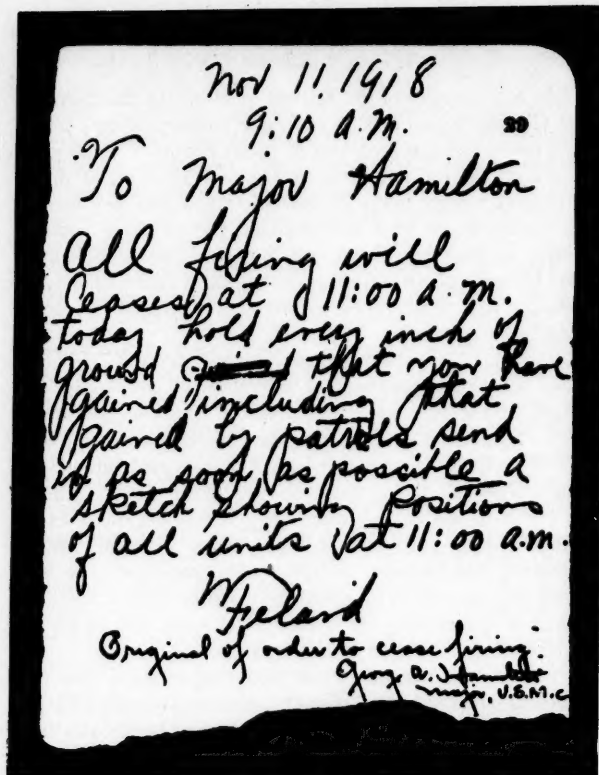 Nov 11. 1918
9:10 A.M.
20
To Major Hamilton
All firing will
ceases at 11:00 a.m.
today hold every inch of
ground that you have
gained including that
gained by patrols send
in as soon as poscible a
sketch showing positions
of all units at 11:00 a.m.
Feland
Original of order to cease firing.
Geo. A. Hamilton
Major, U.S.M.C.